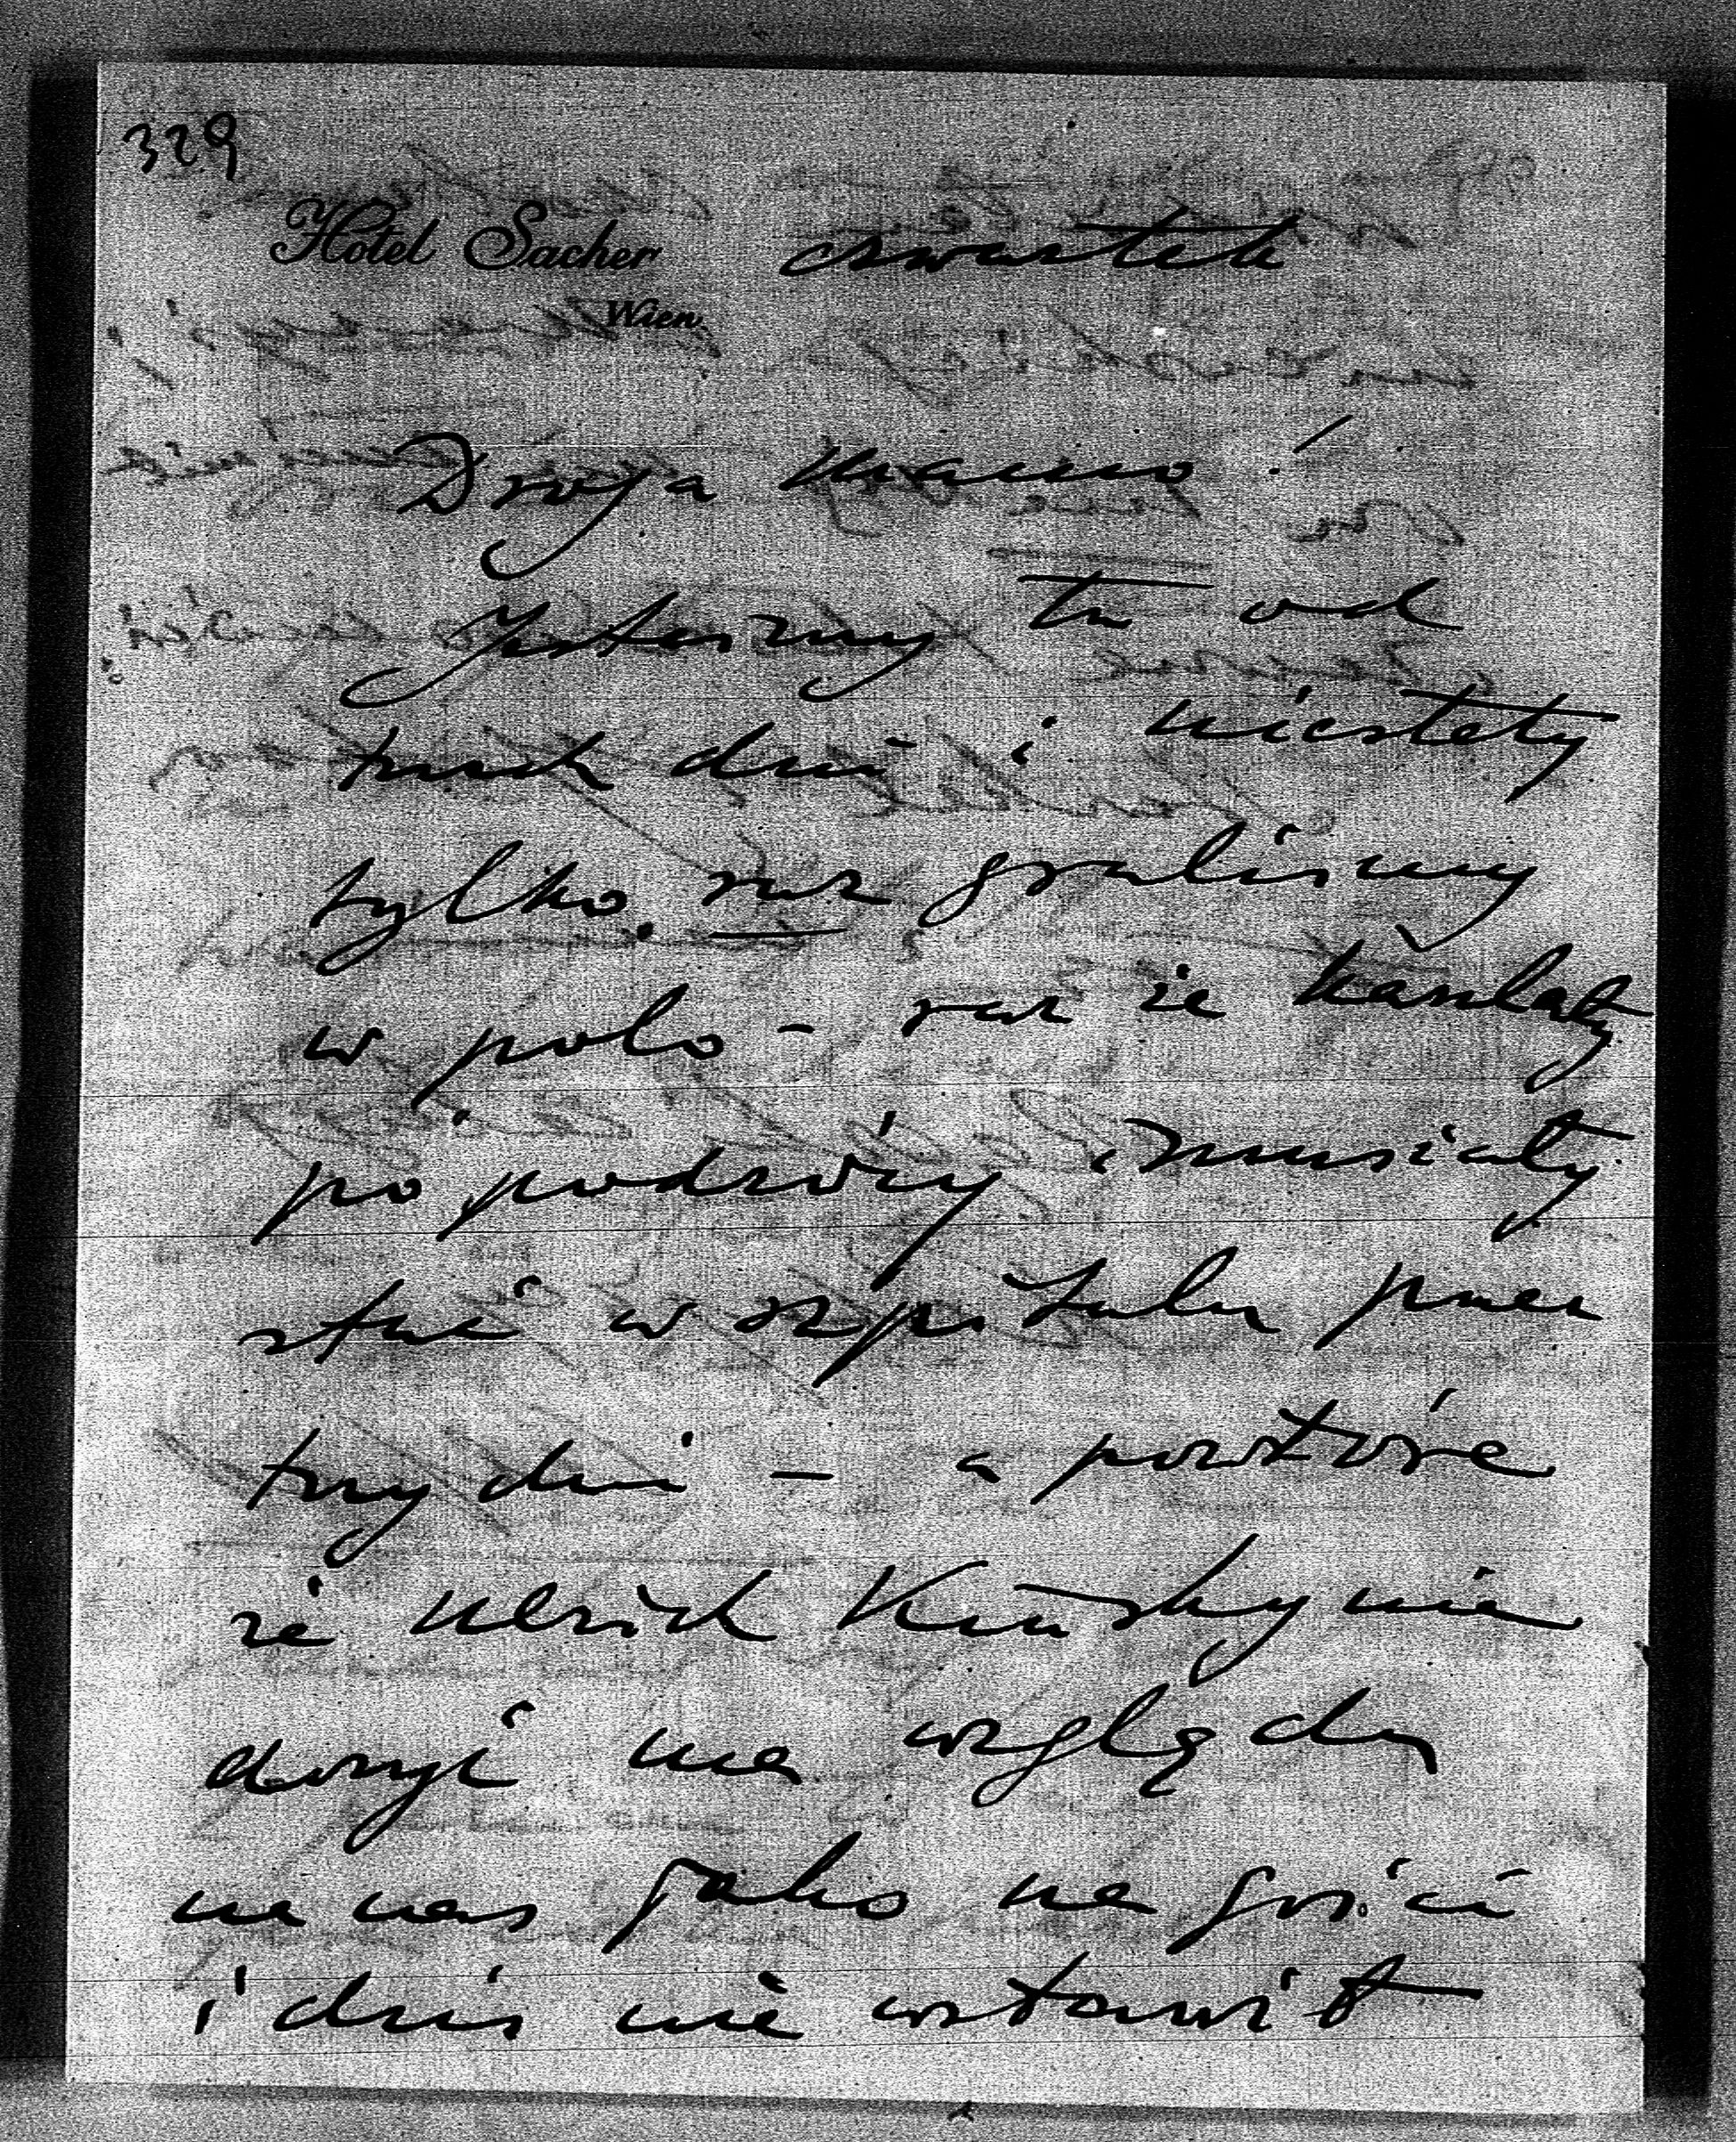 329
Hotel Sacher czwartek
Wien
Droga Mamo!
Jesteśmy tu od
trzech dni i niestety
tylko raz graliśmy
w polo – raz że kaszlały
po podróży i musiały
stać w szpitalu przez
trzy dni – a powtóre
że Ulrich Kinsky nie
dosyć ma względu
na nas jako na gości
i dziś nie wstawił